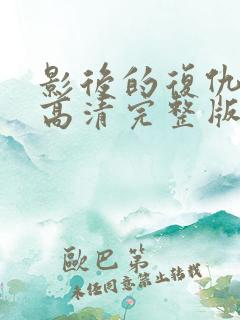 影后的復仇
高清完整版
歐巴第
未任同意禁止转载